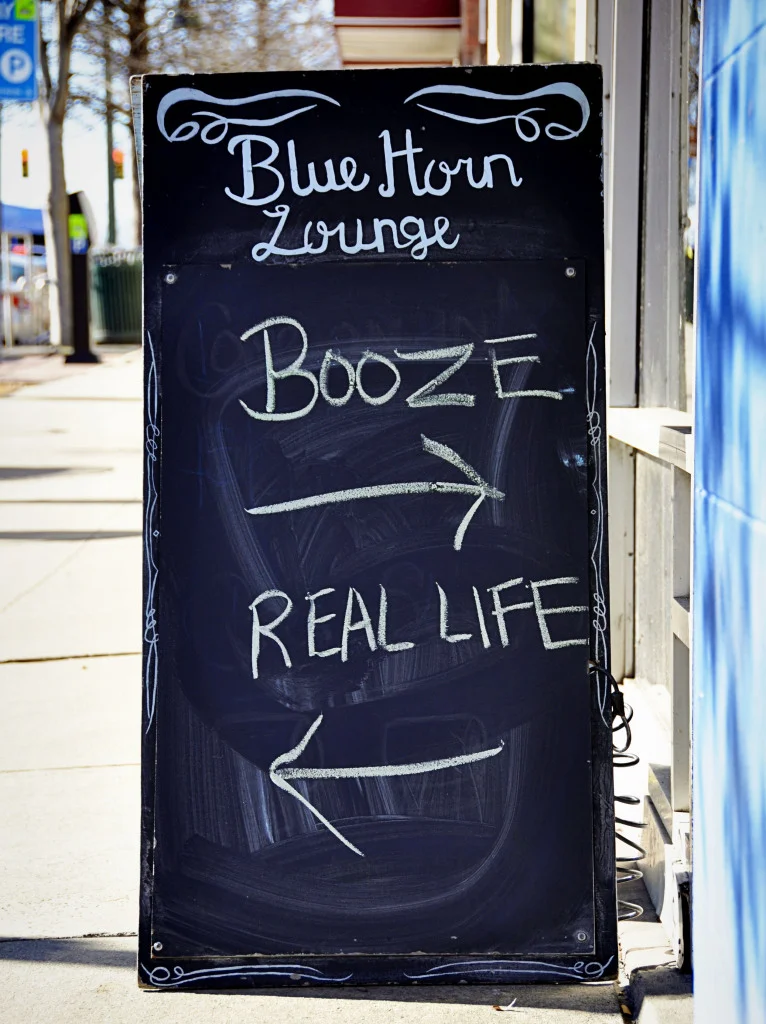 RE
P
Blue Horn
Lounge
BOOZE
REAL LIFE